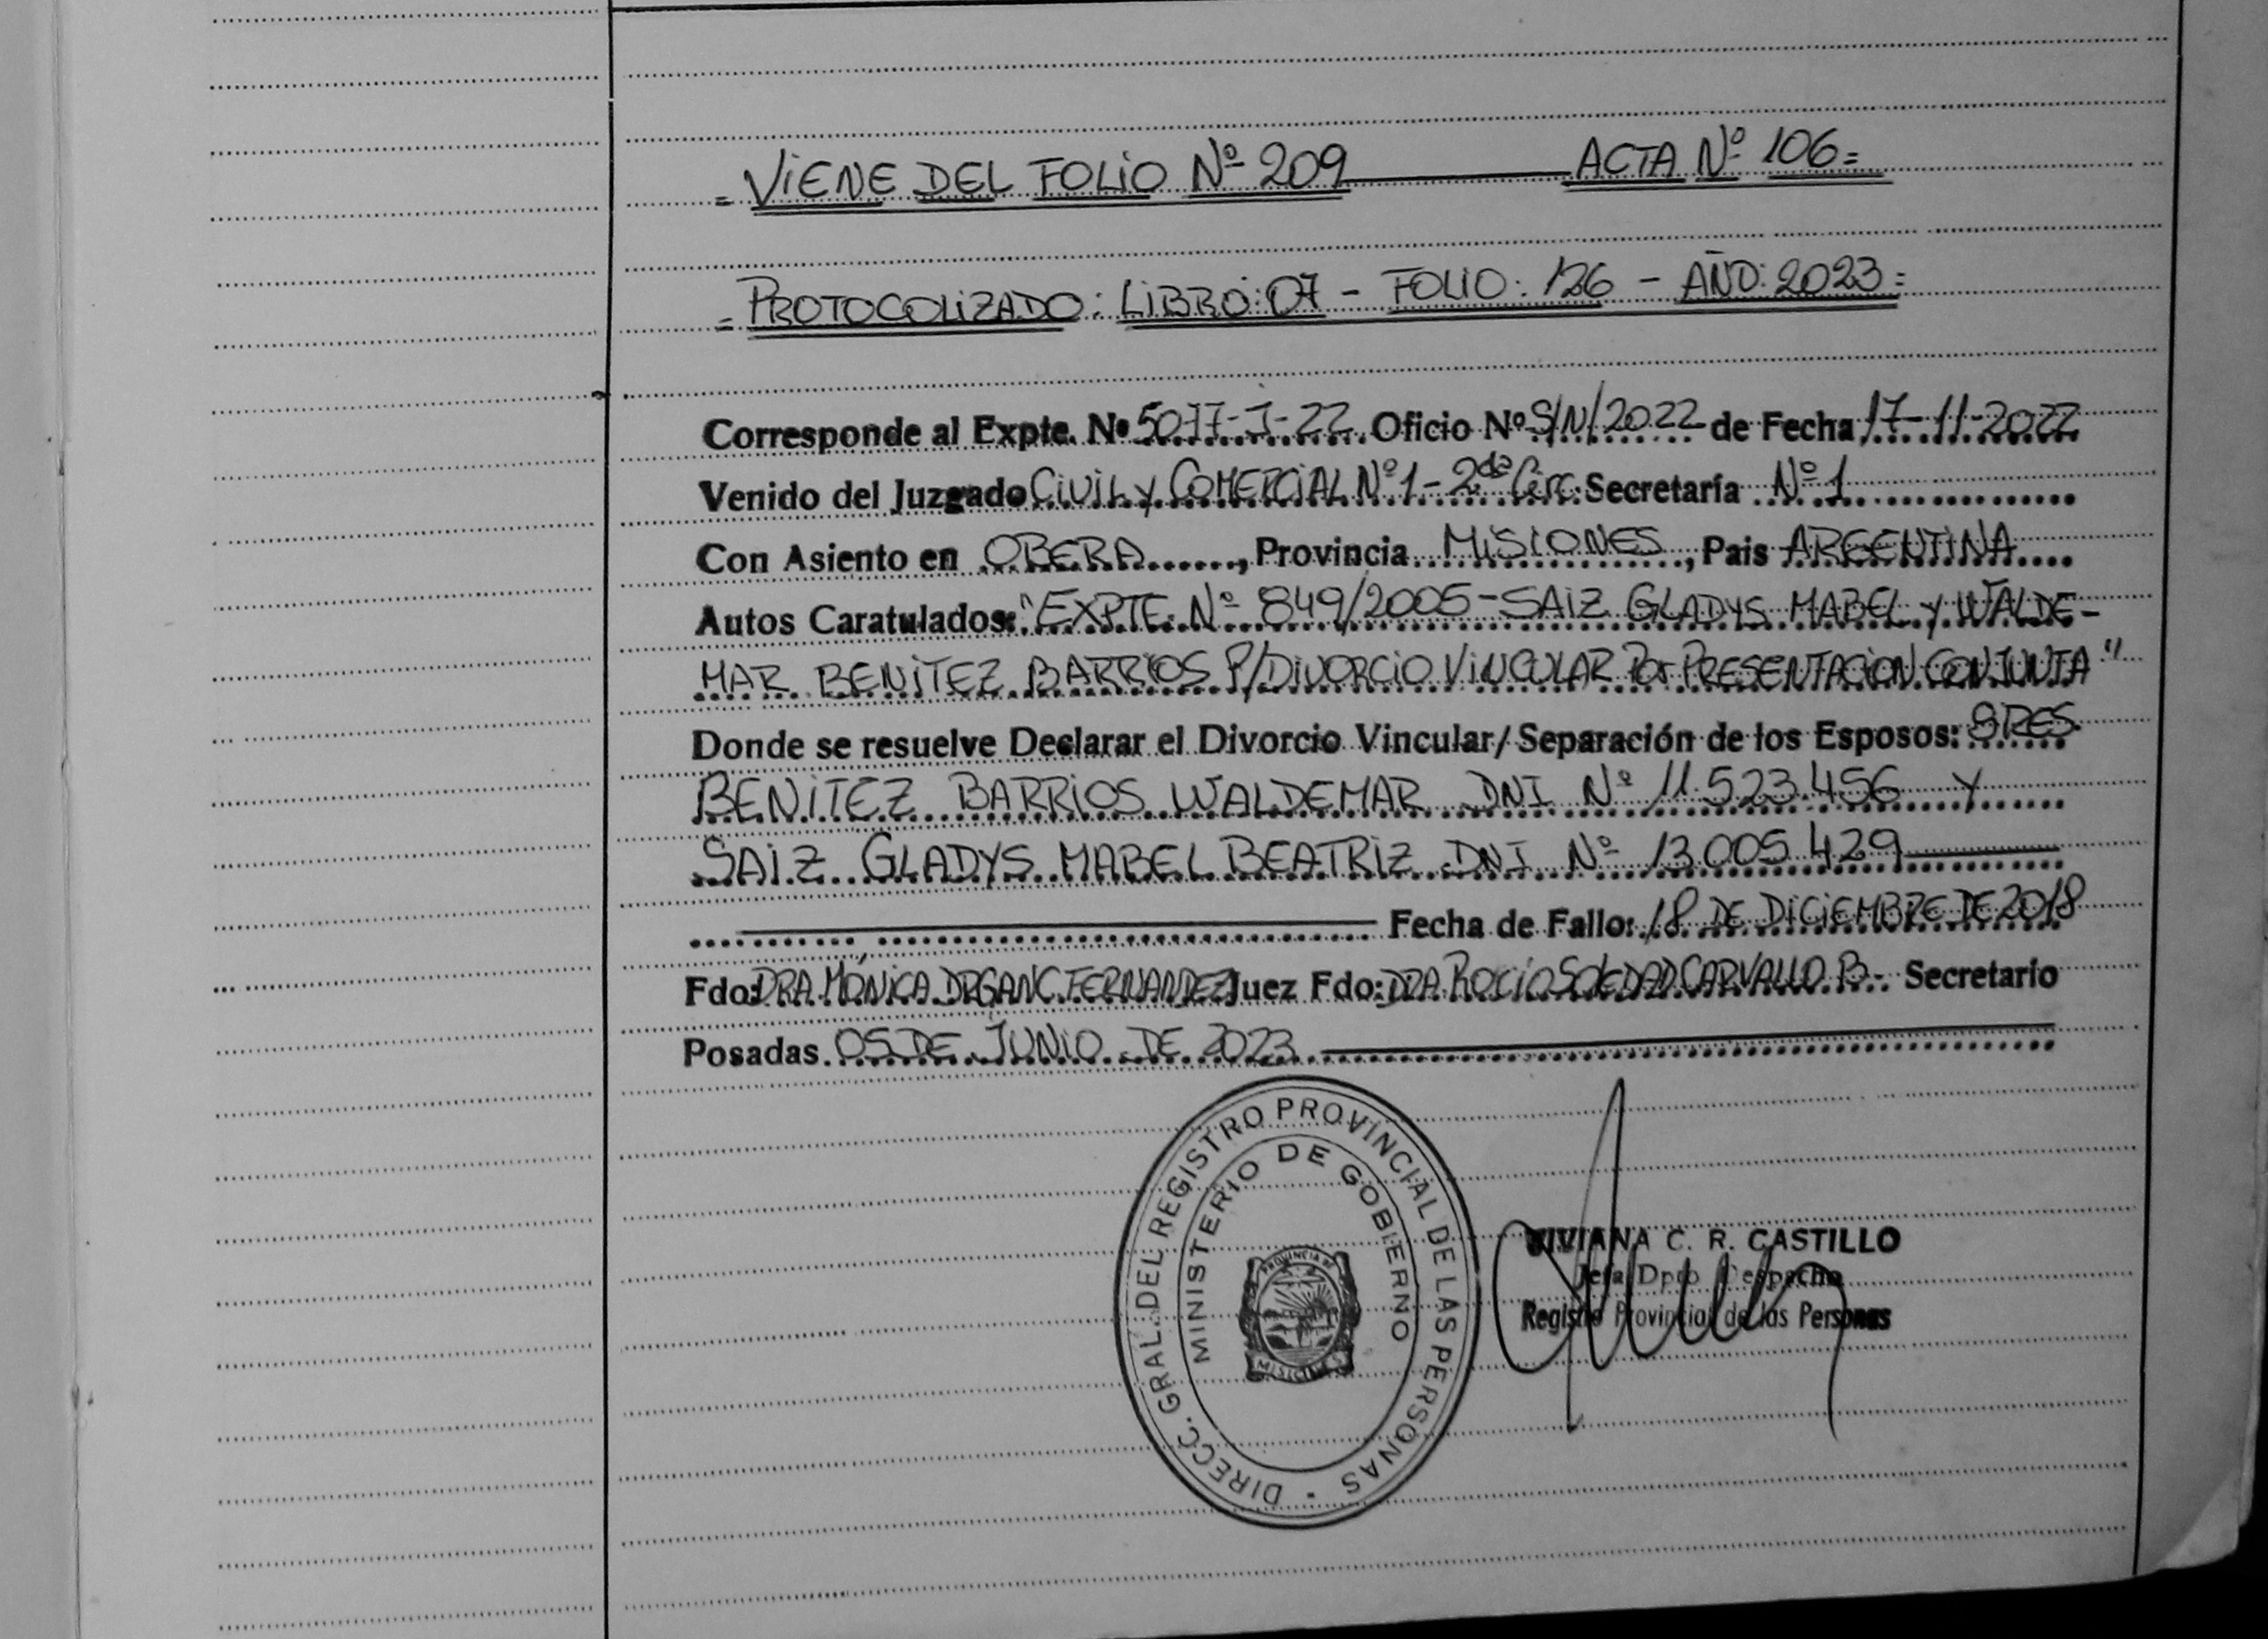 = VIENE DEL FOLIO Nº 209 ACTA Nº 106=
= PROTOCOLIZADO: LIBRO: 07 - FOLIO: 126 - AÑO: 2023=
Corresponde al Expte. Nº 5077-J-22. Oficio Nº S/N/2022 de Fecha 17-11-2022
Venido del Juzgado CIVIL y COMERCIAL Nº 1 - 2da Circ. Secretaría Nº 1
Con Asiento en OBERA, Provincia MISIONES, Pais ARGENTINA
Autos Caratulados: "EXPTE. Nº 849/2005 - SAIZ GLADYS MABEL Y WALDE-
MAR BENITEZ BARRIOS P/DIVORCIO VINCULAR Por PRESENTACION CONJUNTA"
Donde se resuelve Declarar el Divorcio Vincular/Separación de los Esposos: SRES.
BENITEZ BARRIOS WALDEMAR DNI Nº 11.523.456 Y
SAIZ GLADYS MABEL BEATRIZ DNI Nº 13.005.429
Fecha de Fallo: 18 DE DICIEMBRE DE 2018
Fdo: DRA. MÓNICA DRGANC FERNANDEZ Juez Fdo: DRA. ROCÍO SOLEDAD CARVALLO B.- Secretario
Posadas 05 DE JUNIO DE 2023
DIRECC. GRAL. DEL REGISTRO PROVINCIAL DE LAS PERSONAS
MINISTERIO DE GOBIERNO
PROVINCIA D
MISIONES
VIVIANA C. R. CASTILLO
Jefa Dpto Despacho
Registro Provincial de las Personas